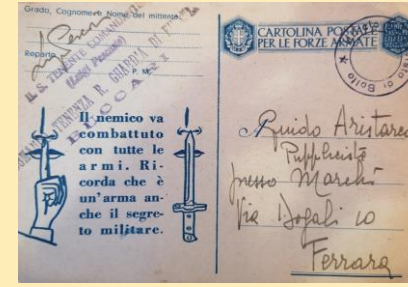 Grado, Cognome e Nome del mittente
Reparto
P. M.
IL S. TENENTE COMANDANTE
(Luigi Pensano)
TENENZA R. GUARDIA DI
BUCCARI
Il nemico va
combattuto
con tutte le
armi. Ri-
corda che è
un'arma an-
che il segre-
to militare.
CARTOLINA POSTALE
PER LE FORZE ARMATE
di Bollo
Guido Aristarco
Pubblicista
presso Marchi
Via Dogali 10
Ferrara